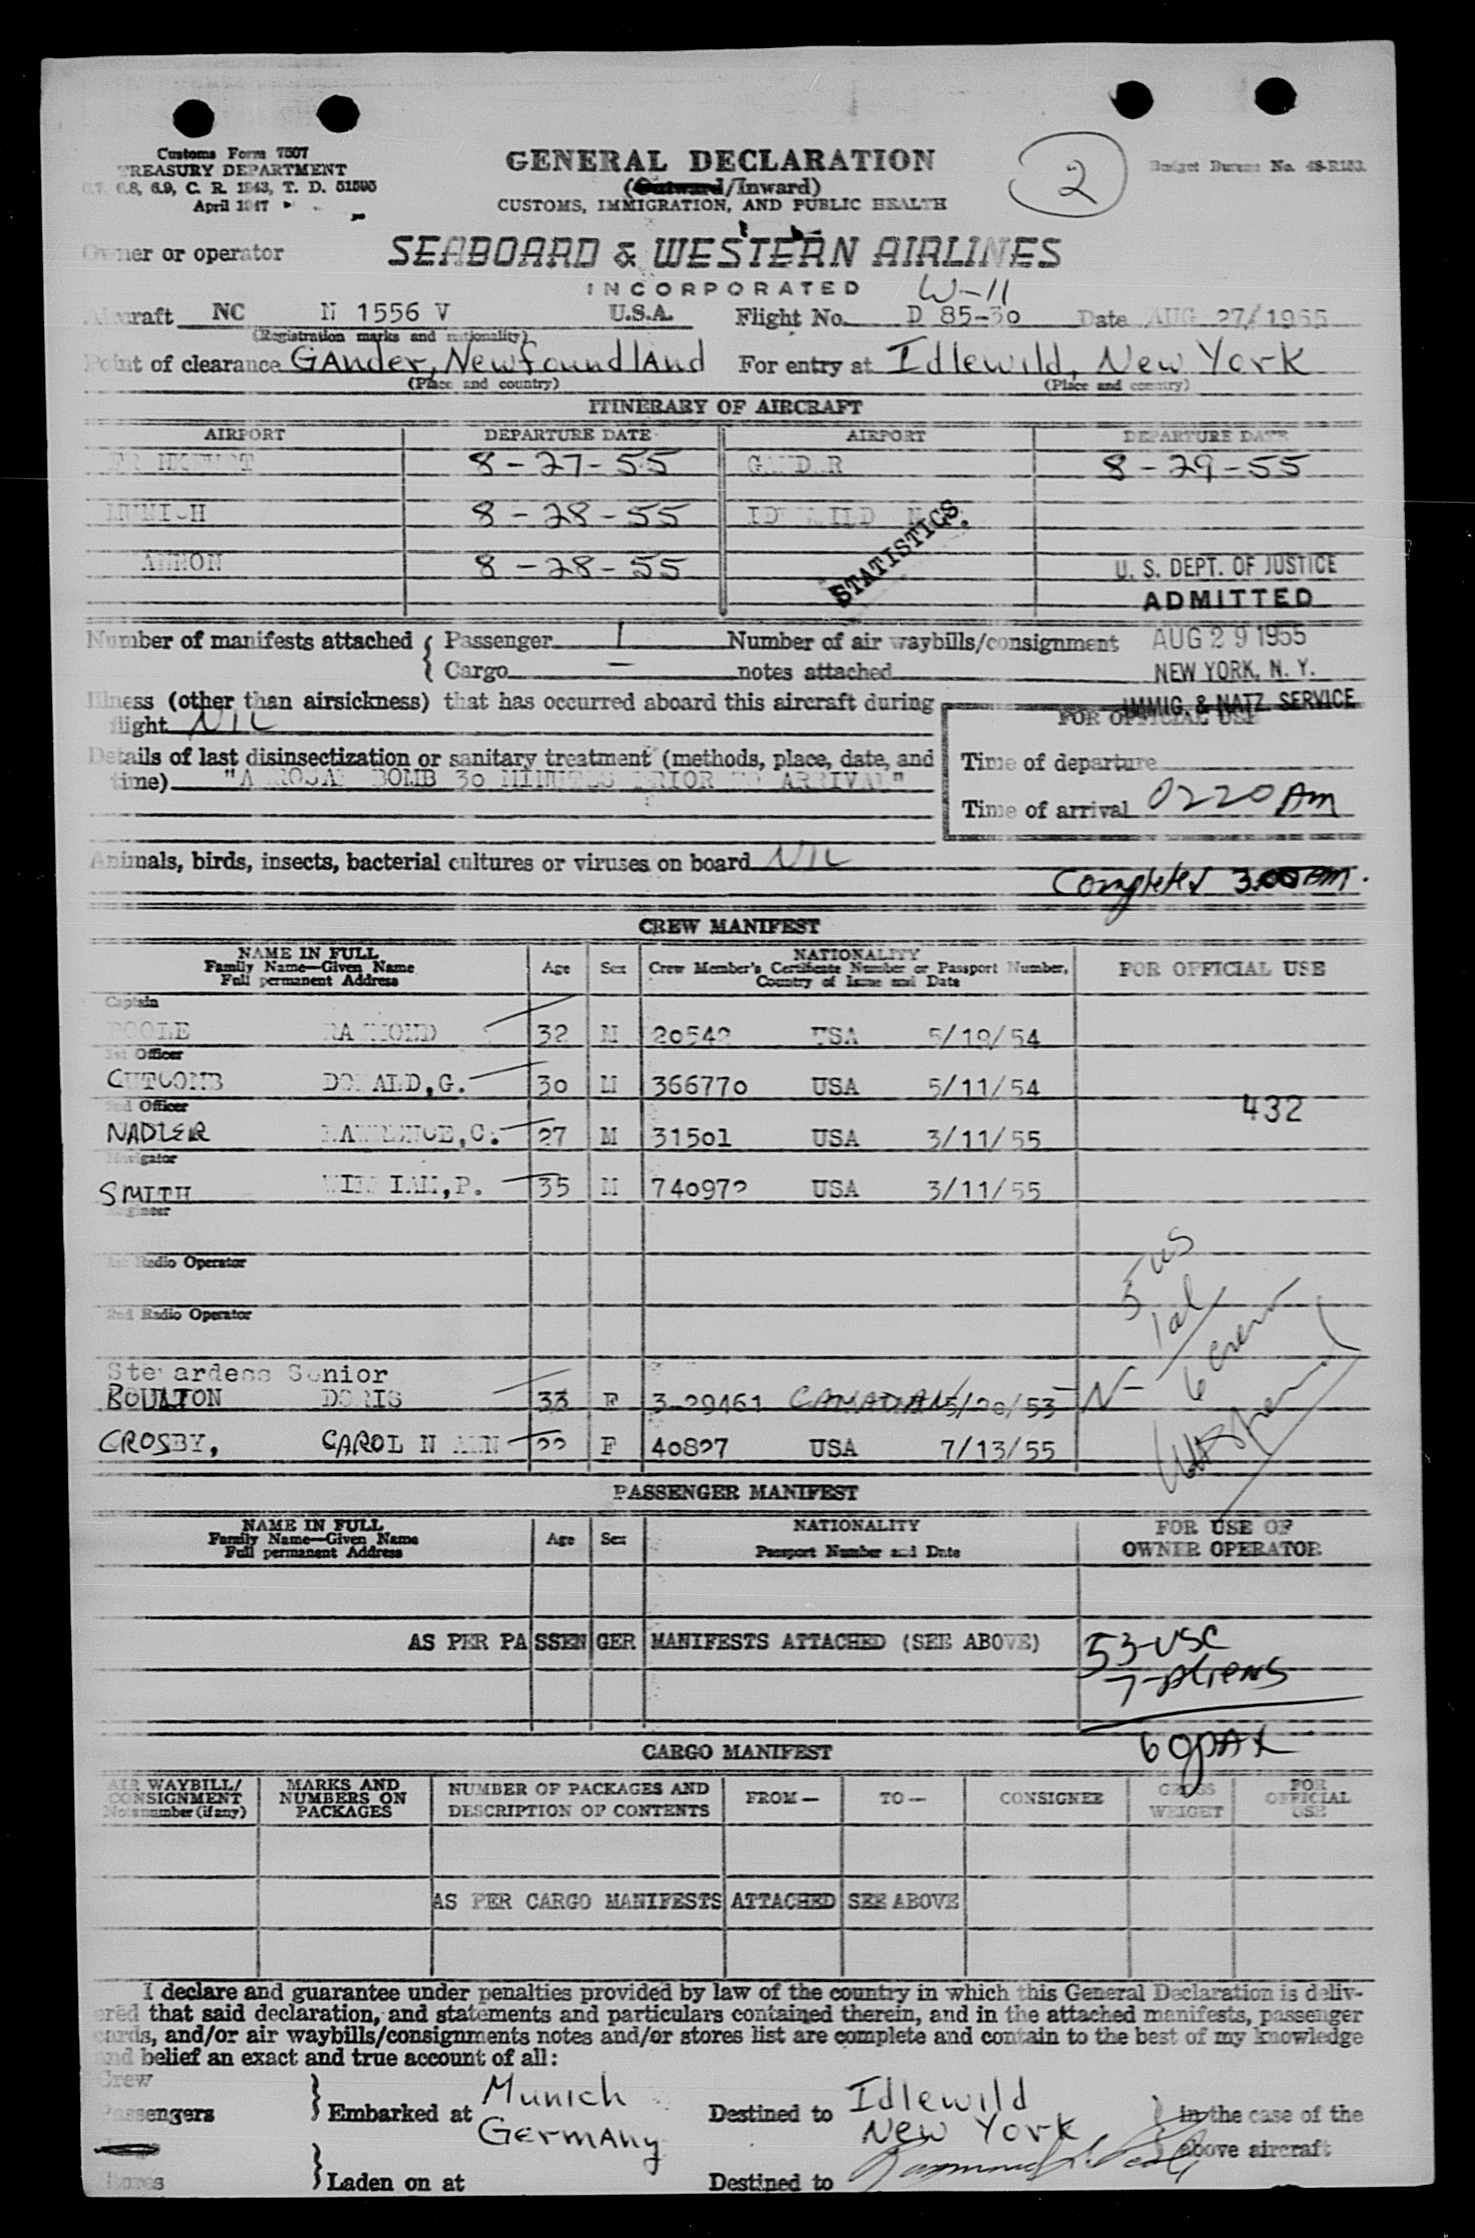 Customs Form 7507
TREASURY DEPARTMENT
6.8, 6.9, C. R. 1943, T. D. 51595
April 1947
GENERAL DECLARATION
(Outward/Inward)
CUSTOMS, IMMIGRATION, AND PUBLIC HEALTH
2
Budget Bureau No.
Owner or operator SEABOARD & WESTERN AIRLINES
INCORPORATED W-11
Aircraft NC N 1556 V U.S.A. Flight No. D 85-30 Date AUG 27/1955
(Registration marks and nationality)
Point of clearance GAnder, NewfoundlAnd For entry at Idlewild, New York
(Place and country) (Place and country)
ITINERARY OF AIRCRAFT
AIRPORT DEPARTURE DATE AIRPORT DEPARTURE DATE
8-27-55 8-29-55
MUNICH 8-28-55
8-28-55
STATISTICS.
U. S. DEPT. OF JUSTICE
ADMITTED
AUG 29 1955
NEW YORK, N. Y.
IMMIG. & NATZ. SERVICE
Number of manifests attached { Passenger 1 Number of air waybills/consignment
Cargo — notes attached
Illness (other than airsickness) that has occurred aboard this aircraft during
flight NIL
FOR OFFICIAL USE
Details of last disinsectization or sanitary treatment (methods, place, date, and
time) "AEROSAL BOMB 30 MINUTES PRIOR TO ARRIVAL"
Time of departure
Time of arrival 0220 Am
Animals, birds, insects, bacterial cultures or viruses on board NIL
Completed 3.00 AM.
CREW MANIFEST
NAME IN FULL
Family Name—Given Name
Full permanent Address
Age Sex NATIONALITY
Crew Member's Certificate Number or Passport Number,
Country of Issue and Date
FOR OFFICIAL USE
Captain
POOLE RAYMOND 32 M 20542 USA 5/19/54
1st Officer
CUTCOMB DONALD,G. 30 M 366770 USA 5/11/54
2nd Officer
432
NADLER LAWRENCE,C. 27 M 31501 USA 3/11/55
Navigator
SMITH WILLIAM,P. 35 M 740972 USA 3/11/55
Engineer
1st Radio Operator
2nd Radio Operator
5 US
1 al
6 crew
Stewardess Senior
BOULTON DORIS 33 F 3-29461 CANADIAN 5/20/53 -N-
CROSBY, CAROL N ANN 22 F 40827 USA 7/13/55
PASSENGER MANIFEST
NAME IN FULL
Family Name—Given Name
Full permanent Address
Age Sex NATIONALITY
Passport Number and Date
FOR USE OF
OWNER OPERATOR
AS PER PASSENGER MANIFESTS ATTACHED (SEE ABOVE)
53-USC
7-Aliens
60 pAX
CARGO MANIFEST
AIR WAYBILL/
CONSIGNMENT
Note number (if any)
MARKS AND
NUMBERS ON
PACKAGES
NUMBER OF PACKAGES AND
DESCRIPTION OF CONTENTS
FROM— TO— CONSIGNEE
GROSS
WEIGHT
FOR
OFFICIAL
USE
AS PER CARGO MANIFESTS ATTACHED SEE ABOVE
I declare and guarantee under penalties provided by law of the country in which this General Declaration is deliv-
ered that said declaration, and statements and particulars contained therein, and in the attached manifests, passenger
cards, and/or air waybills/consignments notes and/or stores list are complete and contain to the best of my knowledge
and belief an exact and true account of all:
Crew
Passengers } Embarked at Munich Germany Destined to Idlewild New York } in the case of the
above aircraft
Stores } Laden on at Destined to